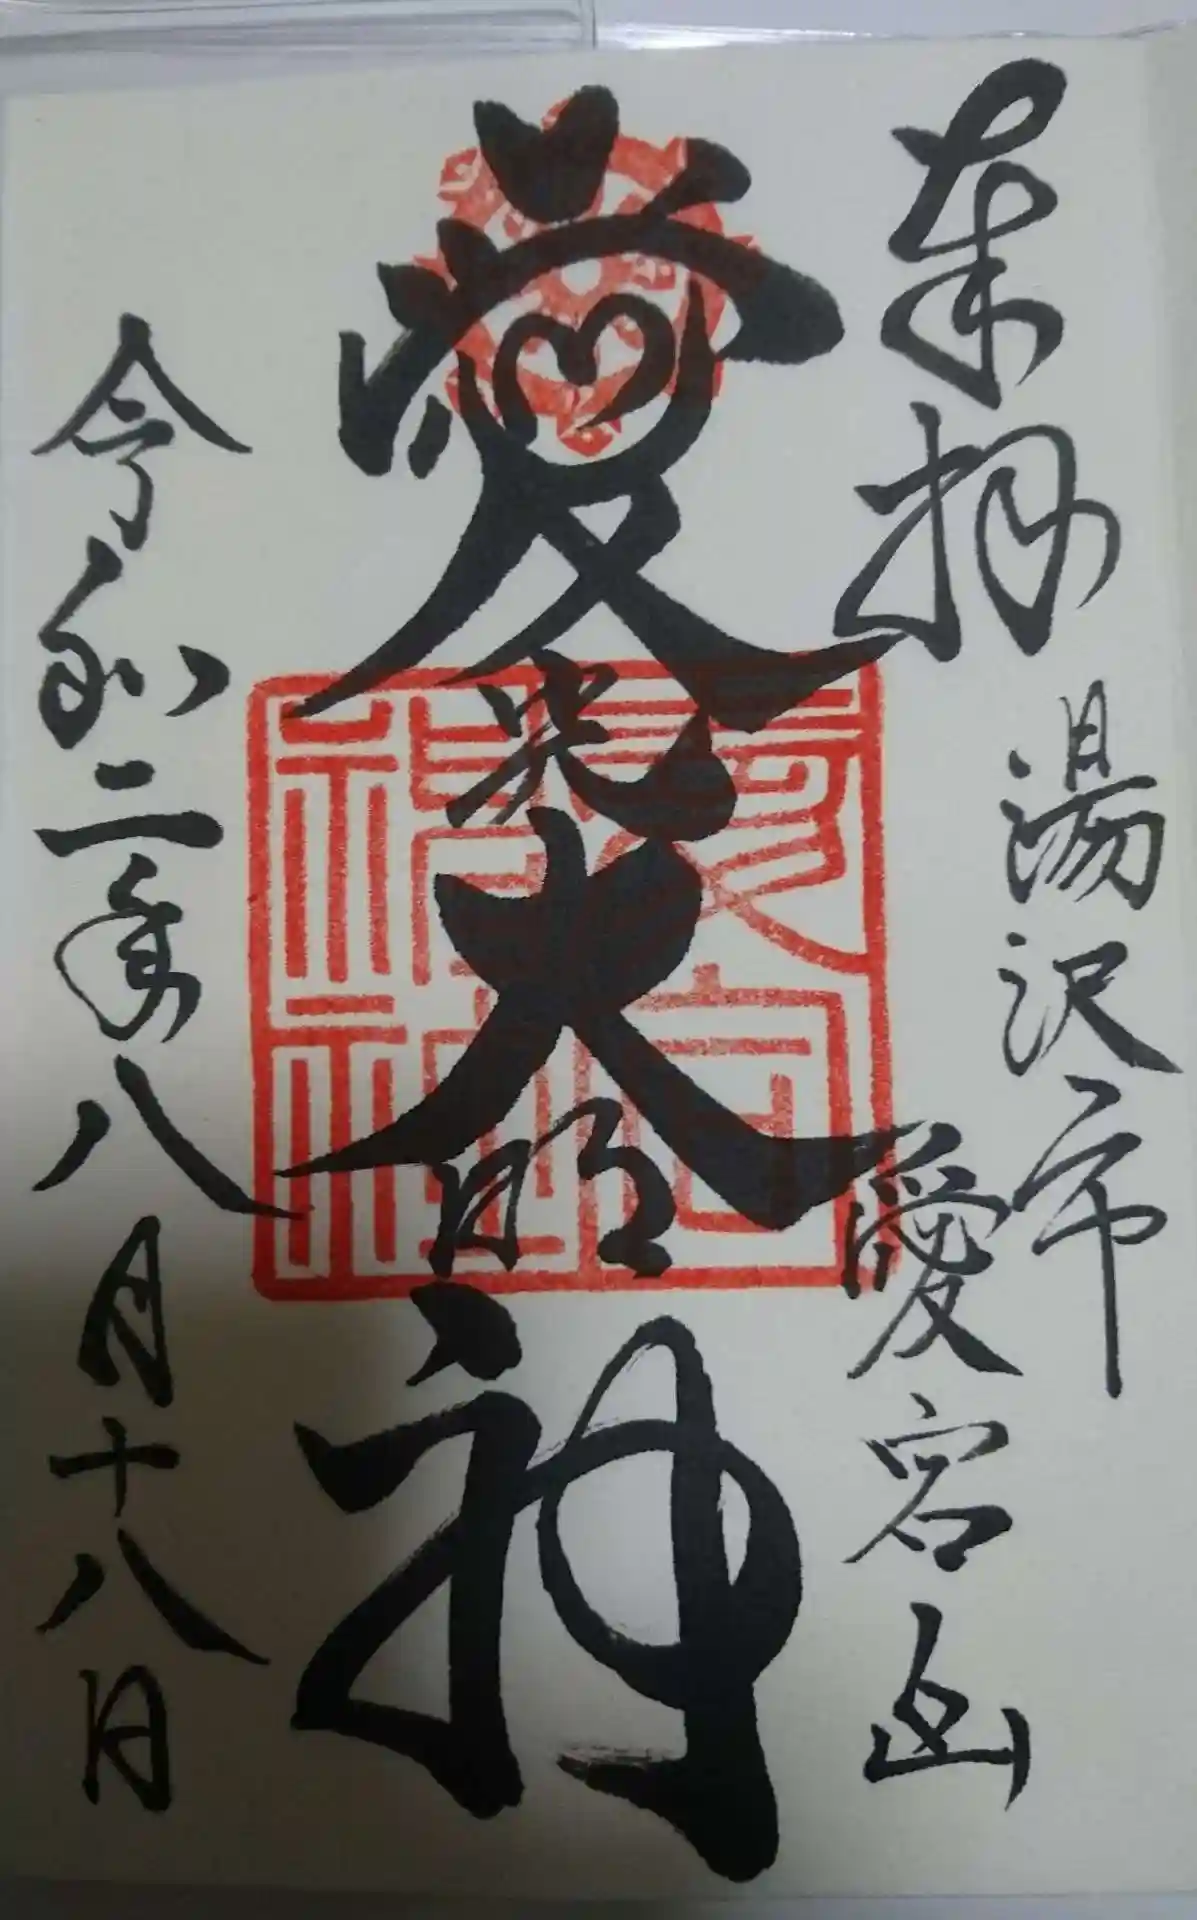 奉拝
湯沢市
愛宕山
愛大明神
愛宕
神社
令和二年八月十八日